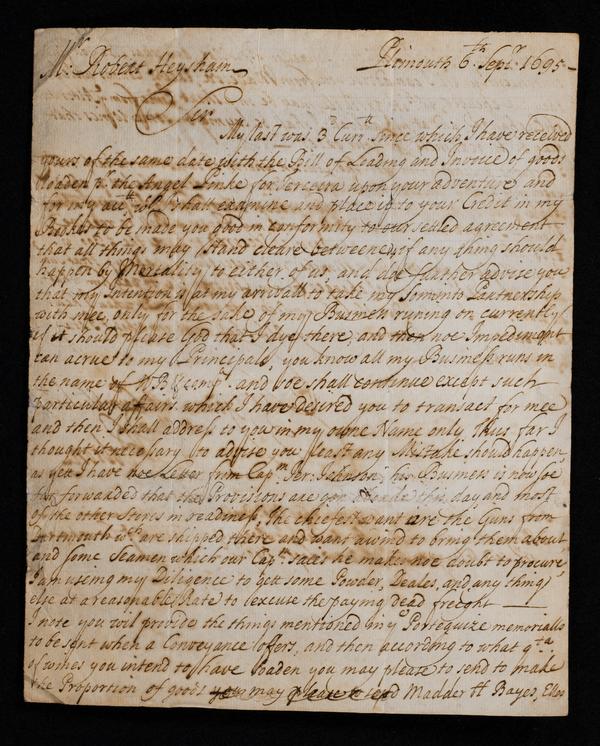 Mr Robert Heysham Plimouth 6th Septr 1695
Sier
My last was 3d Currt since which I have received
yours of the same date with the Bill of Leading and Invoice of goods
loaden pr the Angel Pinke for Terceera upon your adventure and
for my acct all that examine and place it to your Credit in my
Bookes to be made you good in conformity to our sealed agreement
that all things may stand cleare betweene if any thing should
happen by Mortality to either of us, and doe further advise you
that my Intention is at my arrivall to take my Sonn into Partnership
with mee, only for the sake of my Busines runing on currently
if it should please God that I dye there, and then noe Impediment
can acrue to my Principals, you know all my Busines runs in
the name of WB & Compa. and soe shall continue except such
particular affairs which I have desired you to transact for mee
and then I shall address to you in my owne Name only Thus far I
thought it necessary to advise you least any Mistake should happen
as yea I have noe Letter from Capn Jer: Johnson his Busines is now soe
far forwarded that the Provisions are on this day and most
of the other Stores in readiness, The chiefest want are the Guns from
Dartmouth wch are shipped there and want a wind to bring them about
and some Seamen which our Capn saies he makes noe doubt to procure
I am useing my Diligence to gett some Powder, Deales, and any thing
else at a reasonable Rate to excuse the paying dead freight
I note you wil provide the things mentioned my Porteguize memorialls
to be sent when a Conveyance offers, and then according to what qta
of wines you intend to have loaden you may please to send to make
the Proportion of goods you may please to send Madder lb Bayes, Elles